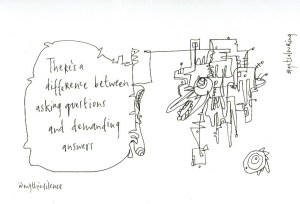 There's a
difference between
asking questions
and demanding
answers